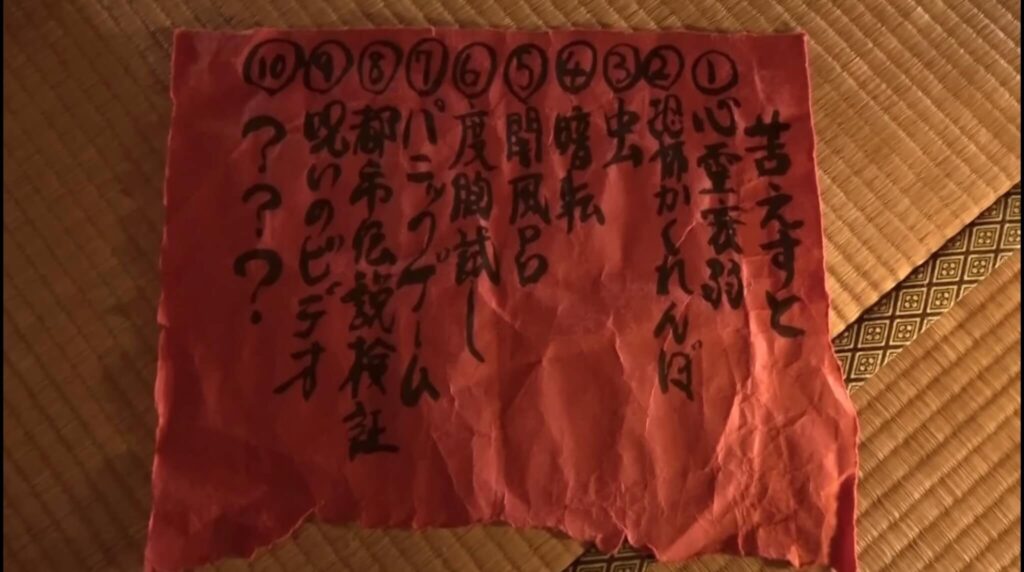 苦えすと
①心霊衰弱
②恐怖かくれんぼ
③虫
④暗転
⑤闇風呂
⑥度胸試し
⑦パニックゲーム
⑧都市伝説検証
⑨呪いのビデオ
⑩？？？